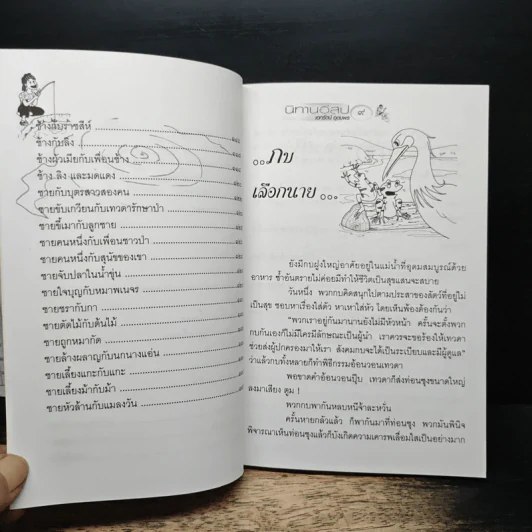 ช้างกับราชสีห์
ช้างกับลิง
ช้างผัวเมียกับเพื่อนช้าง
ช้าง ลิง และมดแดง
ชายกับบุตรสาวสองคน
ชายขับเกวียนกับเทวดารักษาป่า
ชายขี้เมากับลูกชาย
ชายคนหนึ่งกับเพื่อนชาวป่า
ชายคนหนึ่งกับสุนัขของเขา
ชายจับปลาในน้ำขุ่น
ชายใจบุญกับหมาพเนจร
ชายชรากับกา
ชายตัดไม้กับต้นไม้
ชายถูกหมากัด
ชายล้างผลาญกับนกนางแอ่น
ชายเลี้ยงแกะกับแกะ
ชายเลี้ยงม้ากับม้า
ชายหัวล้านกับแมลงวัน
นิทานอีสป ๙
กบ
เลือกนาย
ยังมีกบฝูงใหญ่อาศัยอยู่ในแม่น้ำที่อุดมสมบูรณ์ด้วย
อาหาร ซ้ำอันตรายไม่ค่อยมีทำให้ชีวิตเป็นสุขแสนจะสบาย
วันหนึ่ง พวกกบคิดสนุกไปตามประสาของสัตว์ที่อยู่ไม่
เป็นสุข ชอบหาเรื่องใส่ตัว หาเหาใส่หัว โดยเห็นพ้องต้องกันว่า
"พวกเราอยู่กันมานานยังไม่มีหัวหน้า ครั้นจะตั้งพวก
กบกันเองก็ไม่มีใครมีลักษณะเป็นผู้นำ เราควรจะขอร้องให้เทวดา
ช่วยส่งผู้ปกครองมาให้เรา สังคมกบจะได้เป็นระเบียบและมีผู้ดูแล"
ว่าแล้วกบทั้งหลายก็ทำพิธีกรรมอ้อนวอนเทวดา
พอขาดคำอ้อนวอนปุ๊บ เทวดาก็ส่งท่อนซุงขนาดใหญ่
ลงมาเสียง ตูม !
พวกกบพากันหลบหนีจ้าละหวั่น
ครั้นหายกลัวแล้ว ก็พากันมาที่ท่อนซุง พวกมันพินิจ
พิจารณาเห็นท่อนซุงแล้วก็บังเกิดความเคารพเลื่อมใสเป็นอย่างมาก